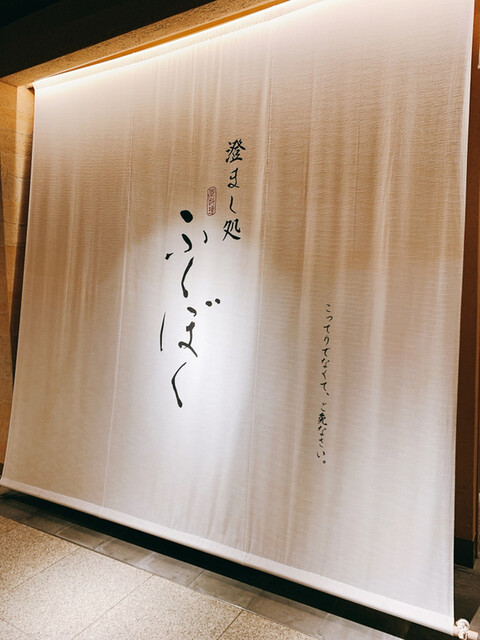 こってりでなくて、ご免なさい。
澄まし処
ふくぼく